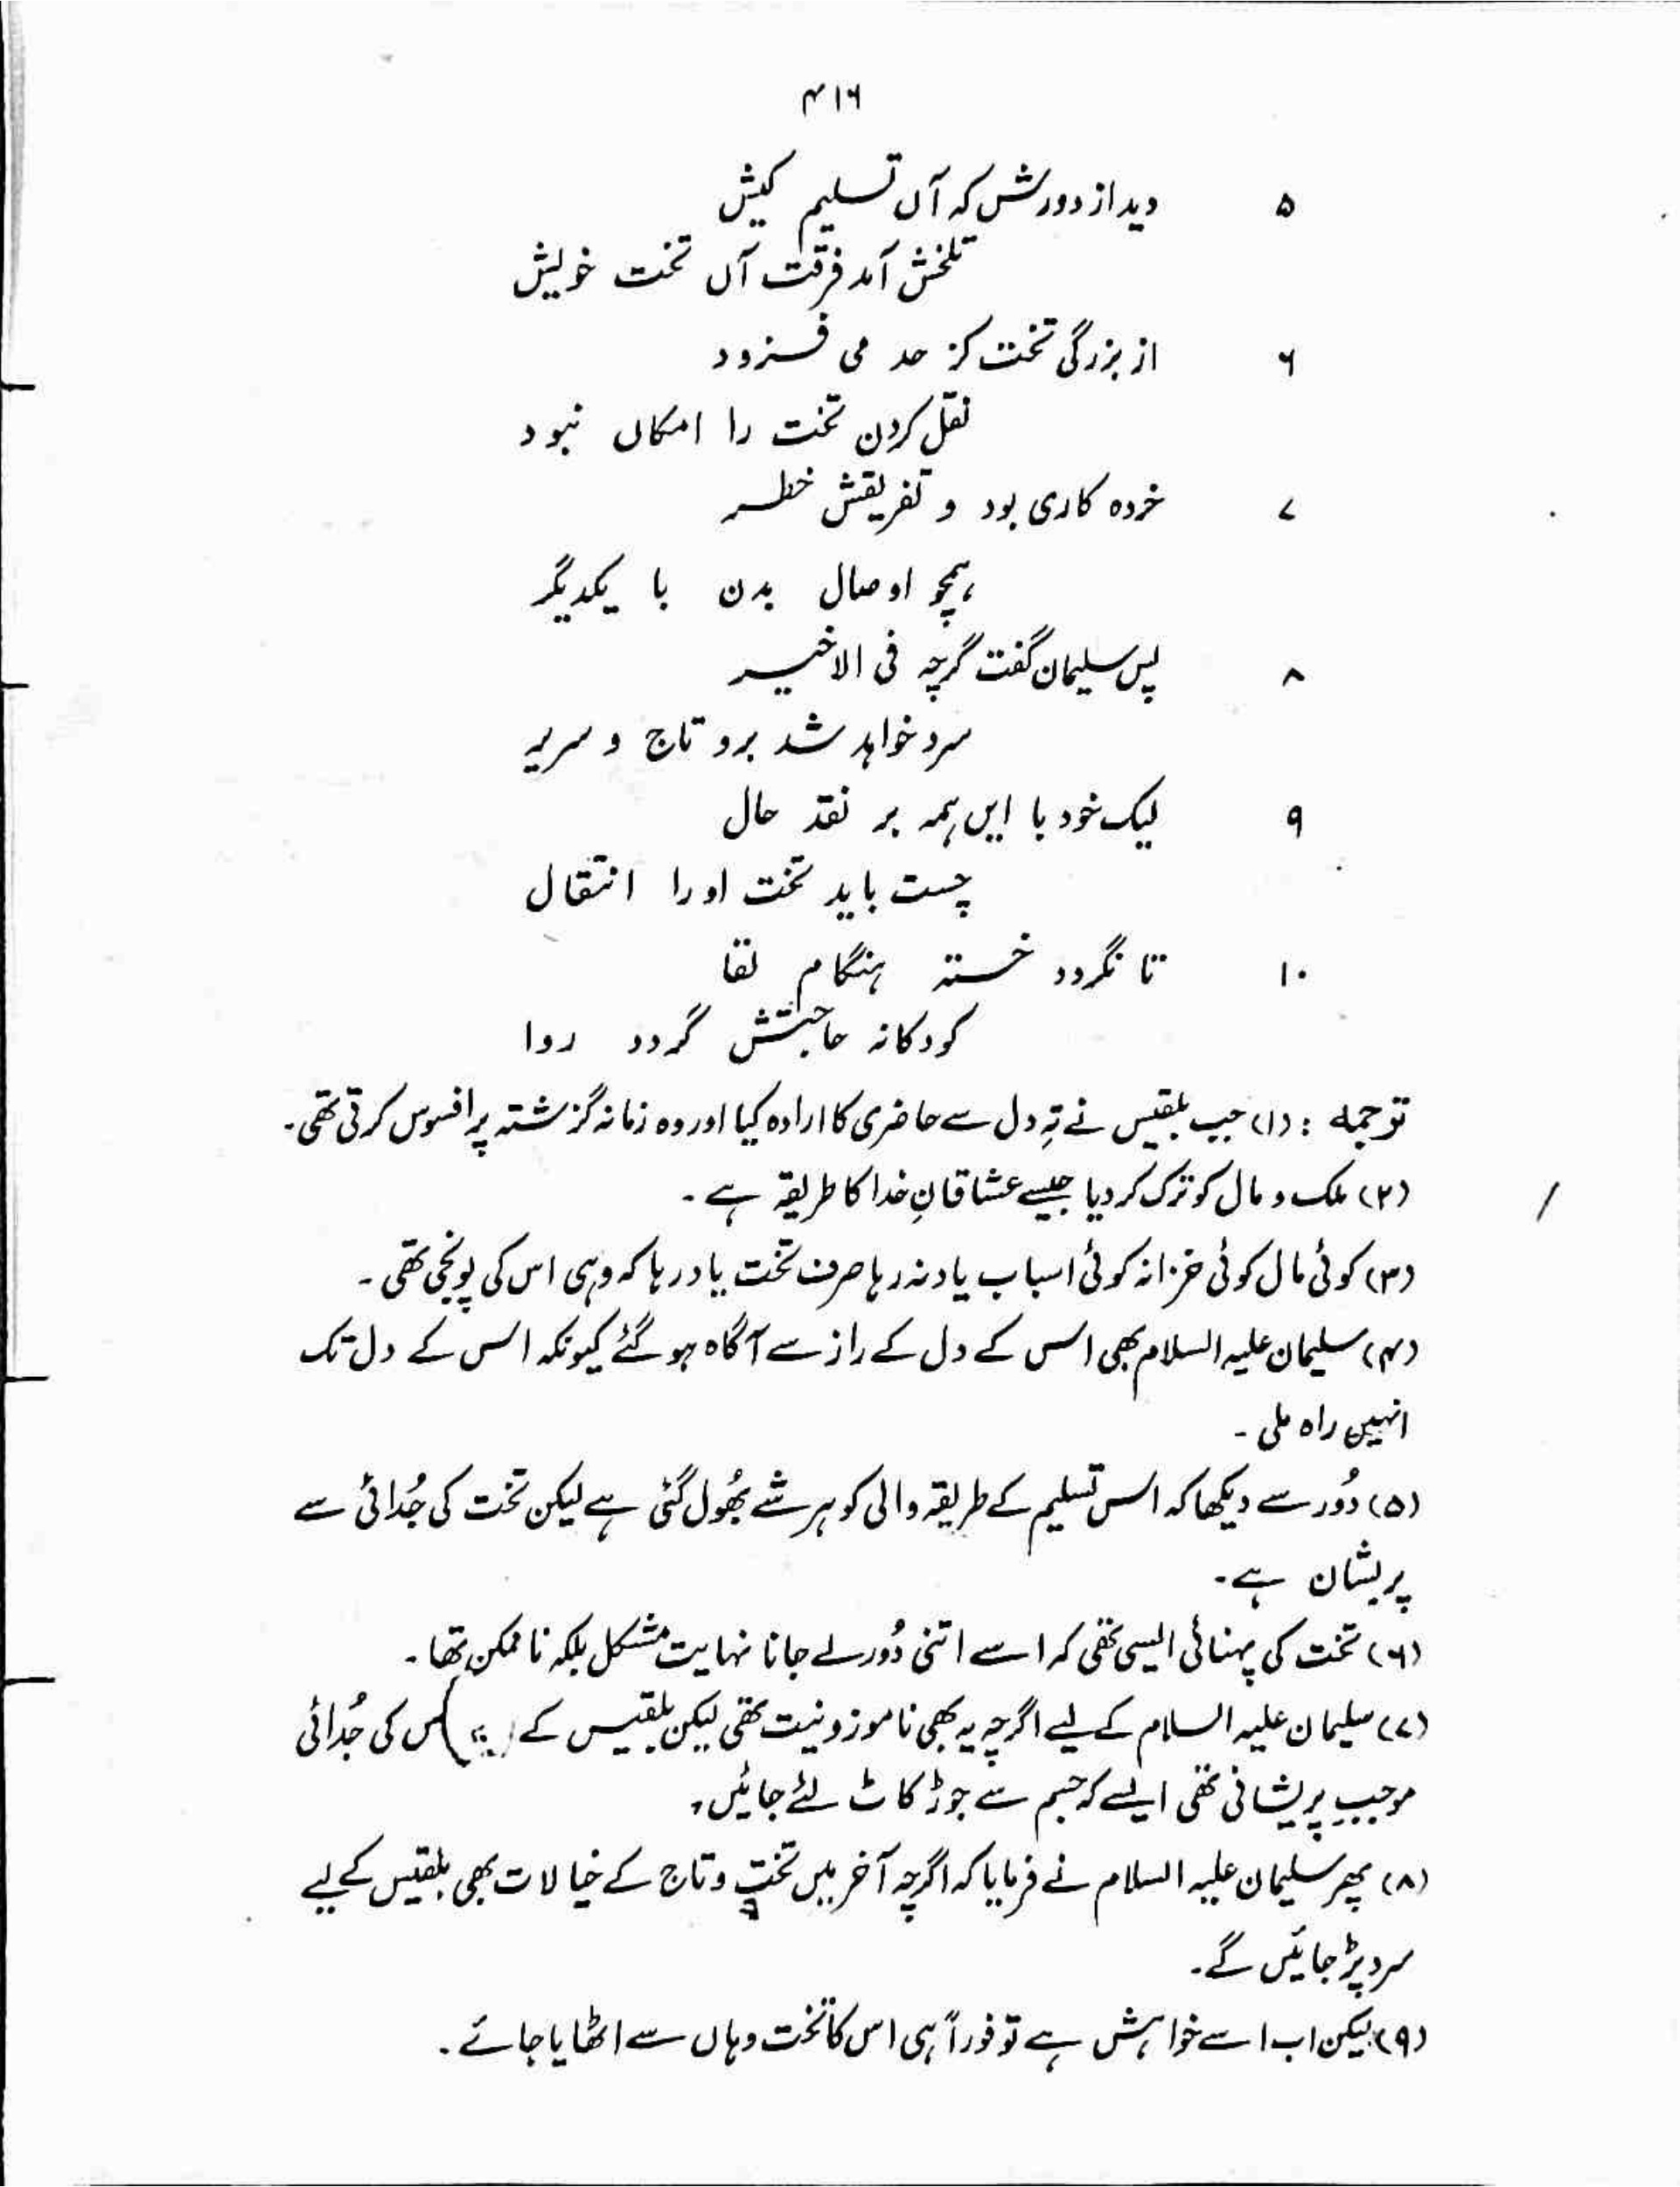 ۴۱۶
۵ دید از دورش که آں تسلیم کیش
تلخش آمد فرقت آں تخت خویش
۶ از بزرگی تخت کز حد می فسزود
نقل کردن تخت را امکاں نبود
۷ خرده کاری بود و تفریقش خطر
ہمچو اوصال بدن با یکدیگر
۸ پس سلیمان گفت گرچہ فی الاخیر
سرد خواہد شد برو تاج و سریر
۹ لیک خود با ایں ہمہ بر نقد حال
چست باید تخت اورا انتقال
۱۰ تا نگردد خستہ ہنگام لقا
کودکانہ حاجتش گردد روا
توجمہ : (۱) جب بلقیس نے تہِ دل سے حاضری کا ارادہ کیا اور وہ زمانہ گزشتہ پر افسوس کرتی تھی۔
(۲) ملک و مال کو ترک کر دیا جیسے عشاقانِ خدا کا طریقہ ہے ۔
(۳) کوئی مال کوئی خزانہ کوئی اسباب یاد نہ رہا صرف تخت یاد رہا کہ وہی اس کی پونجی تھی ۔
(۴) سلیمان علیہ السلام بھی اس کے دل کے راز سے آگاہ ہو گئے کیونکہ اس کے دل تک
انہیں راہ ملی ۔
(۵) دُور سے دیکھا کہ اس تسلیم کے طریقہ والی کو ہر شے بھُول گئی ہے لیکن تخت کی جُدائی سے
پریشان ہے۔
(۶) تخت کی پہنائی ایسی تھی کہ اسے اتنی دُور لے جانا نہایت مشکل بلکہ ناممکن تھا ۔
(۷) سلیمان علیہ السلام کے لیے اگرچہ یہ بھی ناموزونیت تھی لیکن بلقیس کے س کی جُدائی
موجبِ پریشانی تھی ایسے کہ جسم سے جوڑ کاٹ لئے جائیں۔
(۸) پھر سلیمان علیہ السلام نے فرمایا کہ اگرچہ آخر میں تخت و تاج کے خیالات بھی بلقیس کے لیے
سرد پڑ جائیں گے۔
(۹) لیکن اب اسے خواہش ہے تو فوراً ہی اس کا تخت وہاں سے اٹھایا جائے ۔